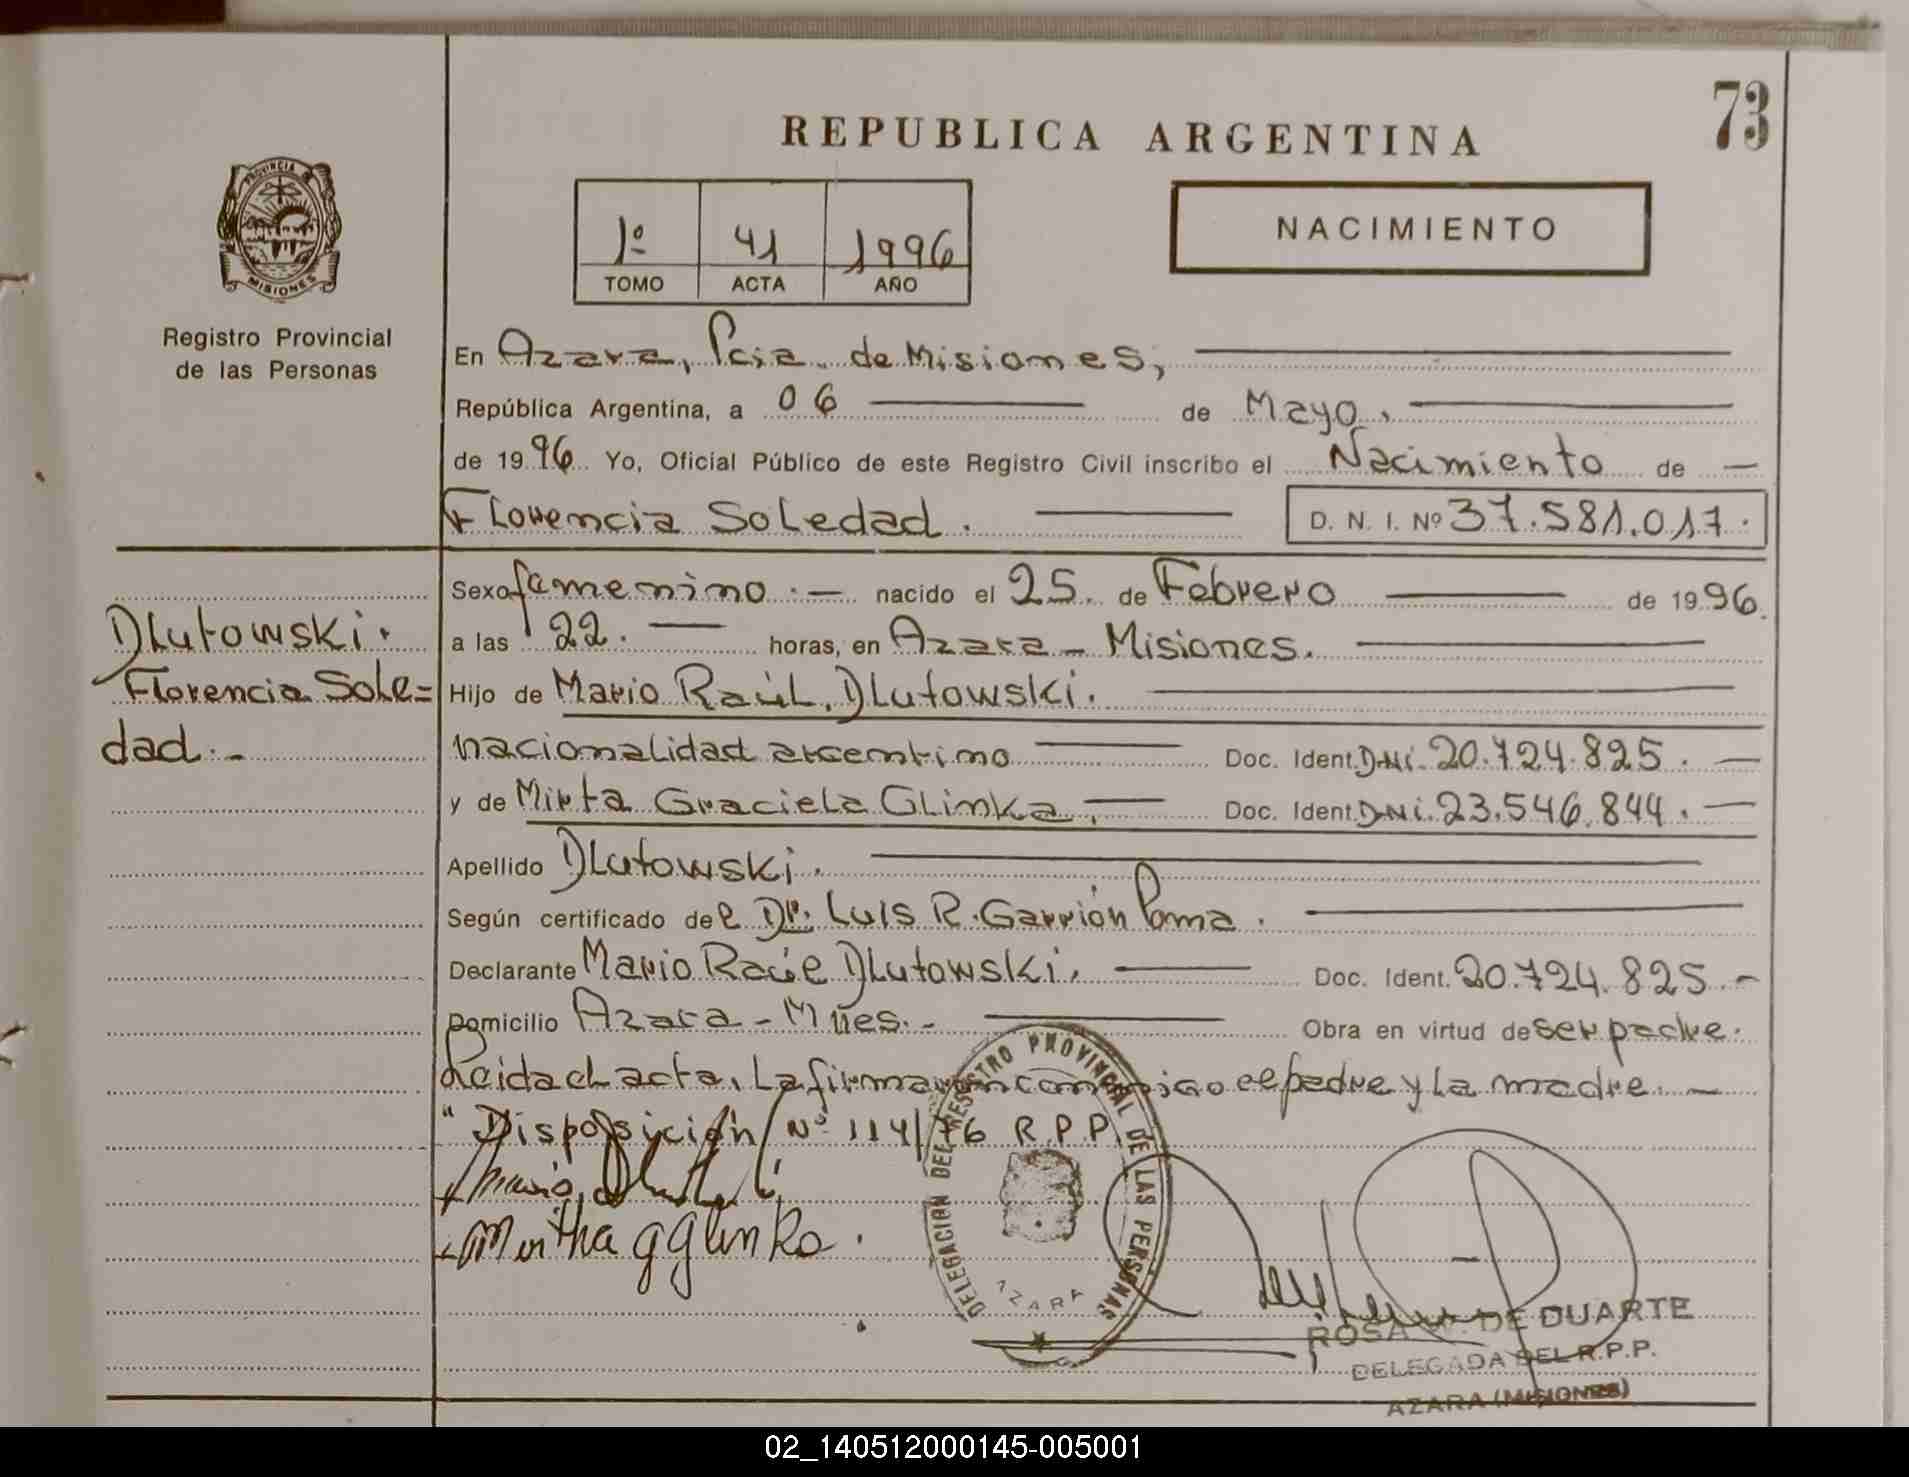 73
REPUBLICA ARGENTINA
PROVINCIA
MISIONES
Registro Provincial
de las Personas
1º 41 1996
TOMO ACTA AÑO
NACIMIENTO
En Azara, Pcia. de Misiones,
República Argentina, a 06 de Mayo.
de 1996 Yo, Oficial Público de este Registro Civil inscribo el Nacimiento de —
Florencia Soledad. D. N. I. Nº 37.581.017.
Sexo femenino. — nacido el 25 de Febrero de 1996.
a las 22. horas, en Azara - Misiones.
Hijo de Mario Raúl, Dlutowski.
nacionalidad argentino Doc. Ident. DNi. 20.724.825. —
y de Mirta Graciela Glinka, — Doc. Ident. DNi. 23.546.844. —
Apellido Dlutowski.
Según certificado del Dr. Luis R. Garrión Poma.
Declarante Mario Raúl Dlutowski, Doc. Ident. 20.724.825. -
Domicilio Azara - Mnes. - Obra en virtud de ser padre.
Leida el acta, la firmaron conmigo el padre y la madre. —
"Disposición Nº 114/76 R.P.P.
Dlutowski.
Florencia Sole=
dad. -
Mirtha G Glinka.
DELEGACION DEL REGISTRO PROVINCIAL DE LAS PERSONAS
AZARA
ROSA DE DUARTE
DELEGADA DEL R.P.P.
AZARA (MISIONES)
02_140512000145-005001